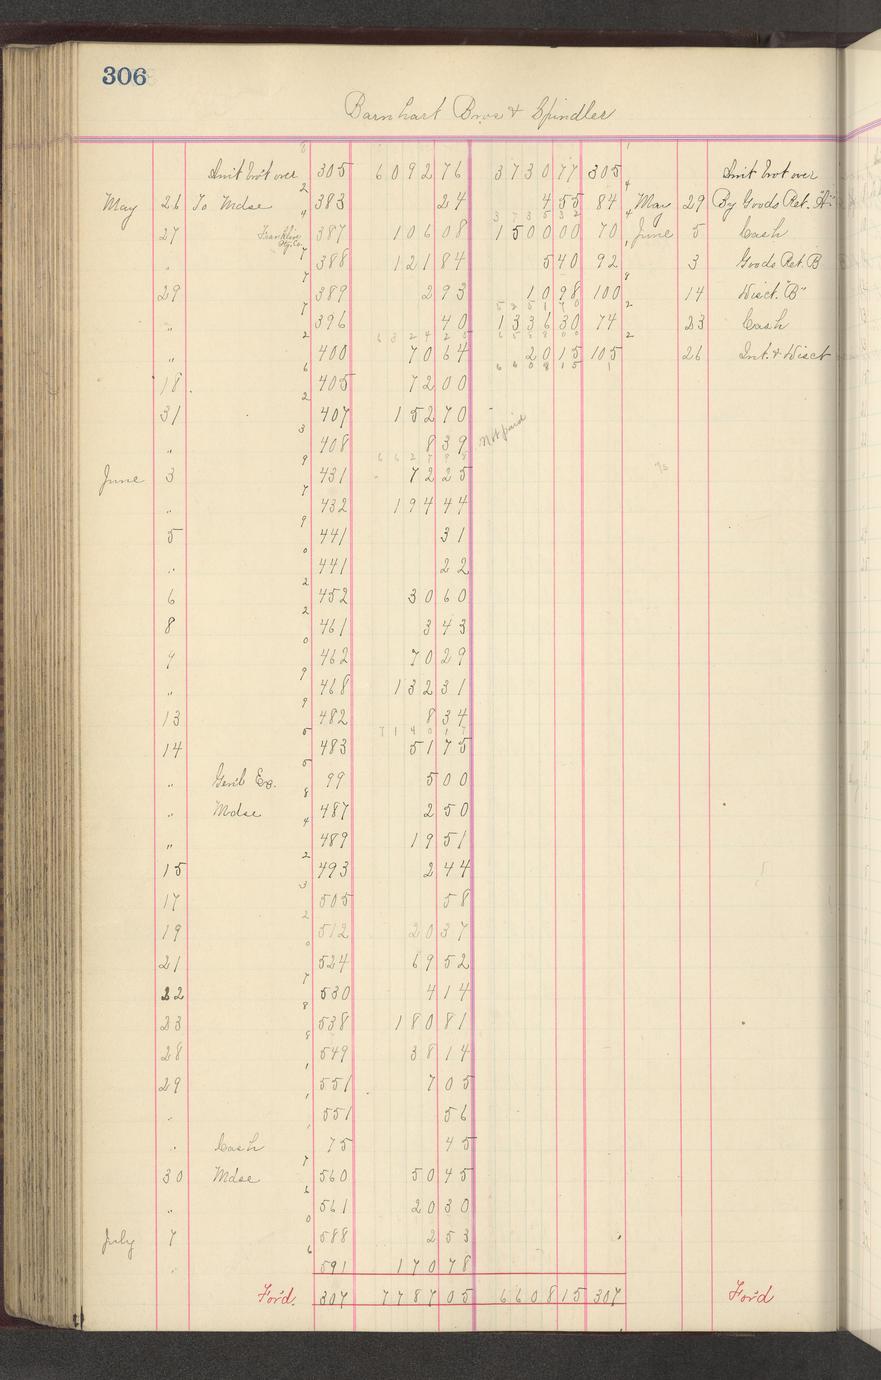 306
Barnhart Bros & Spindler
Am't bro't over 305 6092 76 3730 77 305 Am't bro't over
May 26 To Mdse 383 24 4 55 84 May 29 By Goods Ret. "A"
3 7 3 5 3 2
27 Franklin 387 106 08 1500 00 70 June 5 Cash
" 388 121 84 5 40 92 3 Goods Ret. B
29 389 2 93 10 98 100 14 Disct. "B"
5 2 5 1 7 0
" 396 40 1336 30 74 23 Cash
6 3 2 4 2 5
" 400 70 64 20 15 105 26 Int. & Disct
6 6 0 8 1 5
18 405 72 00
31 407 152 70
" 408 8 39 Not paid
6 6 2 7 9 8
June 3 431 72 25
" 432 194 44
5 441 31
" 441 22
6 452 30 60
8 461 3 43
9 462 70 29
" 468 132 31
13 482 8 34
7 1 4 0 1 7
14 483 51 75
" Gen'l Ex. 99 5 00
" Mdse 487 2 50
" 489 19 51
15 493 2 44
17 505 58
19 512 20 37
21 524 69 52
22 530 4 14
23 538 180 81
28 549 38 14
29 551 7 05
" 551 56
" Cash 75 45
30 Mdse 560 50 45
" 561 20 30
July 7 588 2 53
" 591 170 78
For'd. 307 7787 05 6608 15 307 For'd